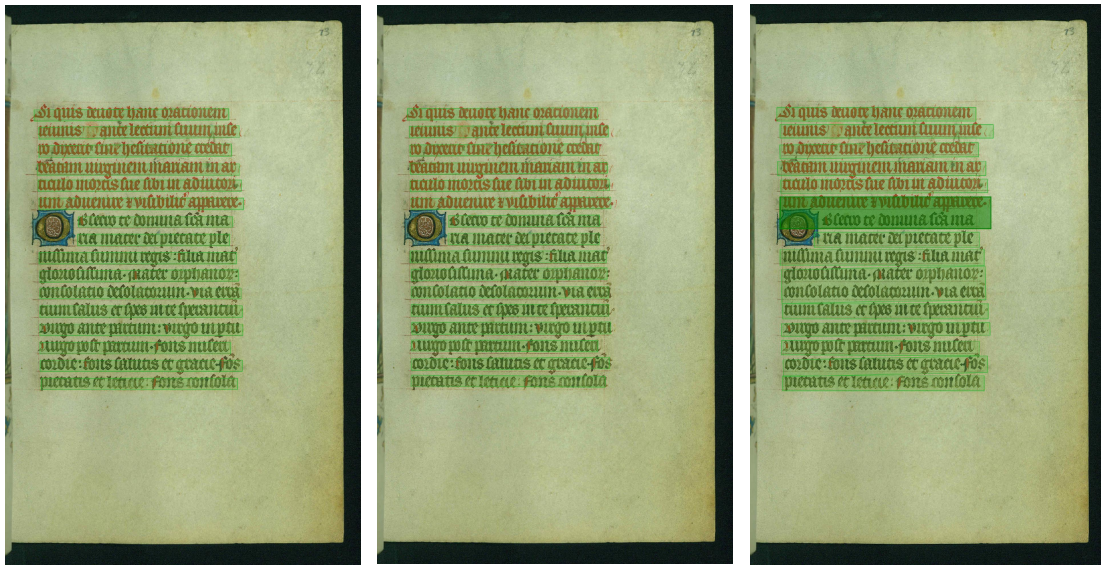 23
Si quis deuote hanc orationem
ieiunis ante lectum suum inse
ro dixerit sine hesitatione credat
beatam uirginem mariam in ar
ticulo mortis sue sibi in adiutori
um aduenire & uisibilit' apparere.
Obsecro te domina scā ma
ria mater dei pietate ple
nissima summi regis : filia mat'
gloriosissima. Mater orphanor:
consolatio desolatorum. via errā
tium salus et spes in te sperantiū
virgo ante partum : virgo in ptu
virgo post partum. Fons miseri
cordie : fons salutis et gracie. fōs
pietatis et leticie : fons consola
23
Si quis deuote hanc orationem
ieiunis ante lectum suum inse
ro dixerit sine hesitatione credat
beatam uirginem mariam in ar
ticulo mortis sue sibi in adiutori
um aduenire & uisibilit' apparere.
Obsecro te domina scā ma
ria mater dei pietate ple
nissima summi regis : filia mat'
gloriosissima. Mater orphanor:
consolatio desolatorum. via errā
tium salus et spes in te sperantiū
virgo ante partum : virgo in ptu
virgo post partum. Fons miseri
cordie : fons salutis et gracie. fōs
pietatis et leticie : fons consola
23
Si quis deuote hanc orationem
ieiunis ante lectum suum inse
ro dixerit sine hesitatione credat
beatam uirginem mariam in ar
ticulo mortis sue sibi in adiutori
um aduenire & uisibilit' apparere.
Obsecro te domina scā ma
ria mater dei pietate ple
nissima summi regis : filia mat'
gloriosissima. Mater orphanor:
consolatio desolatorum. via errā
tium salus et spes in te sperantiū
virgo ante partum : virgo in ptu
virgo post partum. Fons miseri
cordie : fons salutis et gracie. fōs
pietatis et leticie : fons consola